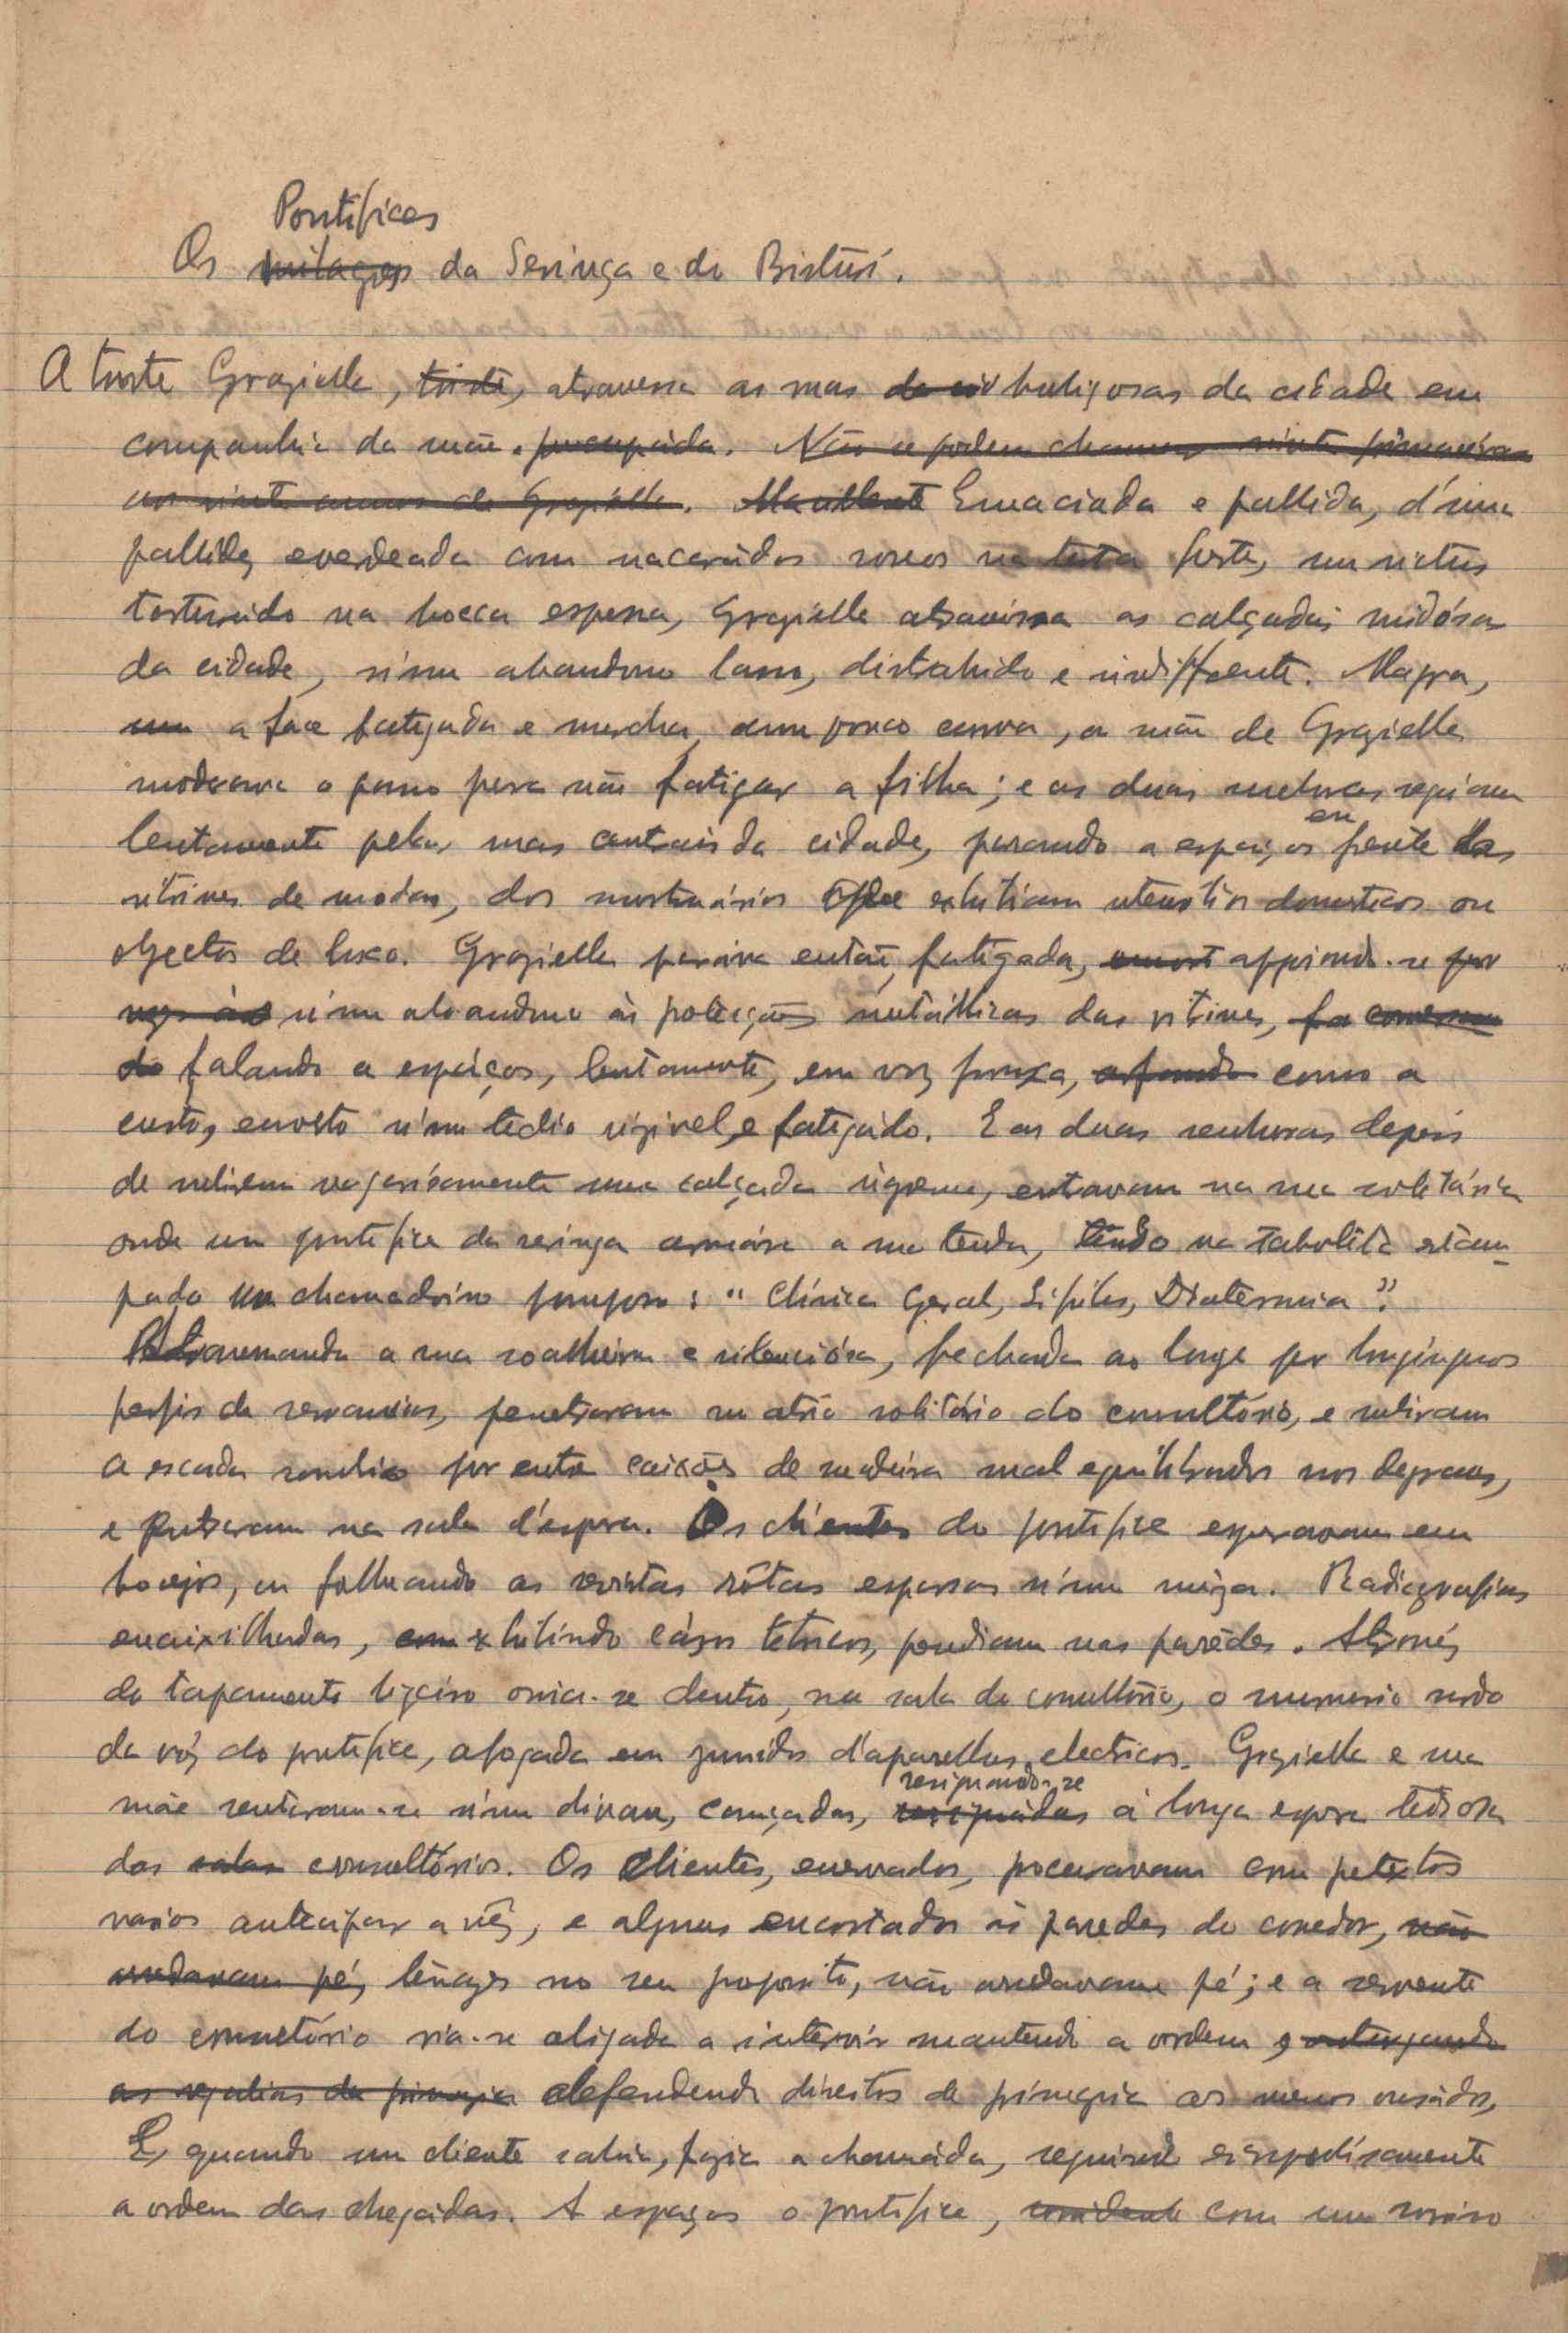 Pontifices
Os milagres da Seringa e do Bisturí.
A triste Grazielle, triste, atravessa as ruas buliçosas da cidade em
companhia da mãe. preocupada. Não se podem chamar vinte primaveras
aos vinte annos de Grazielle. Emaciada e pallida, d'uma
pallidez esverdeada com nacarados roseos na testa forte, um rictus
torturado na bocca espessa, Grazielle atravessa as calçadas ruidósas
da cidade, n'um abandono lasso, distrahido e indifferente. Magra,
a face fatigada e murcha, um pouco curva, a mãe de Grazielle
moderava o passo para não fatigar a filha; e as duas senhoras seguiam
em
lentamente pelas ruas centrais da cidade, parando a espaços frente das
vitrines de modas, dos mostruários que exhibiam utensilios domesticos ou
objectos de luxo. Grazielle parava então, fatigada, appoiando-se por
n'um abandono ás protecções metállicas das vitrines,
falando a espaços, lentamente, em voz frouxa, como a
custo, envolto n'um tedio visivel e fatigado. E as duas senhoras depois
de subirem vagarósamente uma calçada ingreme, entravam na rua solitária
onde um pontifice da seringa armára a sua tenda, tendo na taboleta estam-
pado um chamadoiro pomposo: "Clínica Geral, Sifiles, Diatermia".
Atravessando a rua soalheira e silenciósa, fechada ao longe por longinquos
perfis de serranias, penetraram no atrio solitário do consultório, e subiram
a escada sombria por entre caixões de madeira mal equilibrados nos degraus,
e entraram na sala d'espera. Os clientes do pontifice esperavam em
bocejos, ou folheando as revistas rôtas esparsas n'uma meza. Radiografias
encaixilhadas, exhibindo cásos tetricos, pendiam nas parêdes. Através
do tapamento ligeiro ouvia-se dentro, na sala do consultório, o murmurio surdo
da vóz do pontifice, afogada em zumidos d'aparelhos electricos. Grazielle e sua
resignando-se
mãe sentaram-se n'um divan, cançadas, resignadas á longa espera tediosa
dos salas consultórios. Os clientes, enervados, procuravam com pretextos
varios antecipar a vêz, e alguns encostados ás paredes do corredor, não
arredavam pé, tenazes no seu proposito, não arredavam pé; e a servente
do consultório via-se obrigada a intervir mantendo a ordem, e outorgando
as regalias da primazia defendendo direitos de primazia aos menos ousados,
E, quando um cliente sahia, fazia a chamáda, seguindo escrupulosamente
a ordem das chegadas. A espaços o pontifice, sorridente com um sorriso